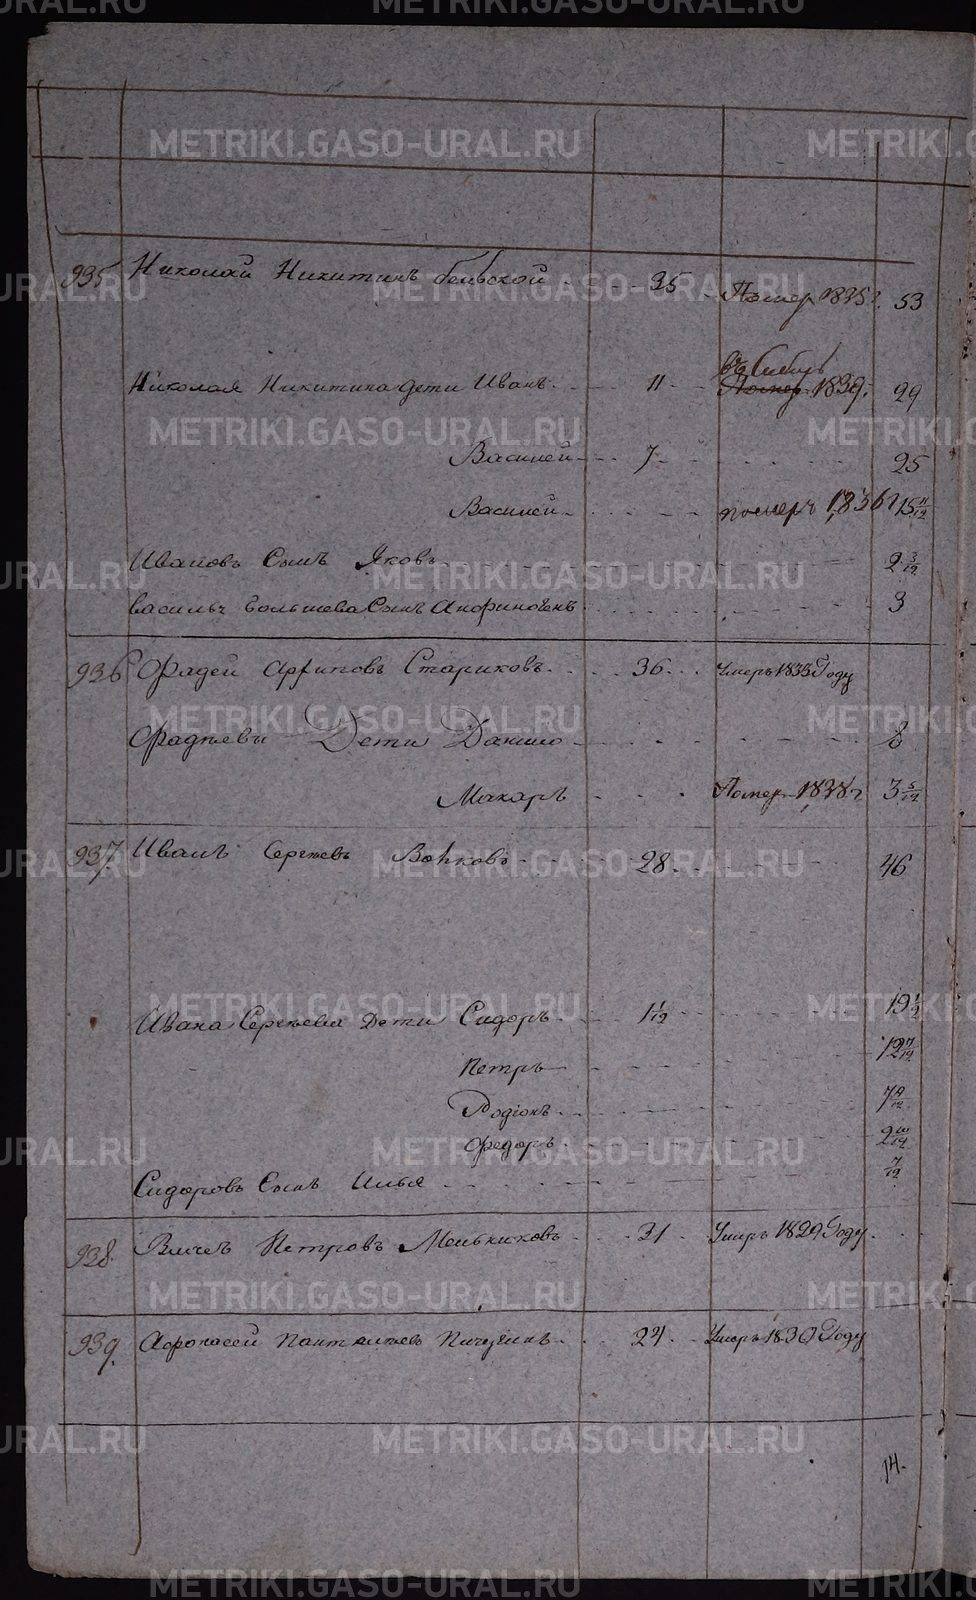 935 Николай Никитинъ бельской 35 Помер 1835 г. 53
въ Сибирь
Николая Никитина дети Иванъ 11 Помер 1839. 29
Василей 7 25
Василей померъ 1836 г 15 11/12
Ивановъ Сынъ Яковъ 2 3/12
василья большева Сынъ 3
936 Фадей Архиповъ Стариковъ 36 Умеръ 1833 Году
Фадѣевы Дети Данило 8
Макаръ Помер 1838 г 3 5/12
937. Иванъ Сергѣевъ Волковъ 28 46
Ивана Сергѣева Дети Сидоръ 1 1/12 19 1/2
Петръ 12 7/12
Родіонъ 7
Федоръ 2 10/12
Сидоровъ Сынъ Илья 7/12
938. Петровъ Мельниковъ 31 Умеръ 1829 Году
939. Афонасей Пантелѣевъ Пичугинъ 24 Умеръ 1830 Году
14.
METRIKI.GASO-URAL.RU